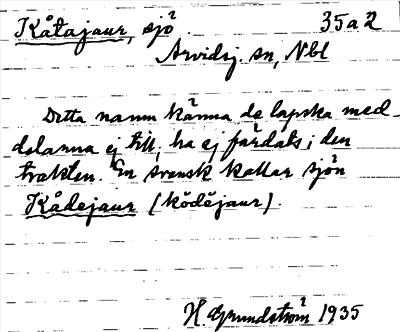 Kåtajaur, sjö 35a2
Arvidsj. sn, Nbl
Detta namn känna de lapska med-
delarna ej till; ha ej färdats i den
trakten. En svensk kallar sjön
Kådejaur (kŏdĕjaur).
H. Grundström 1935